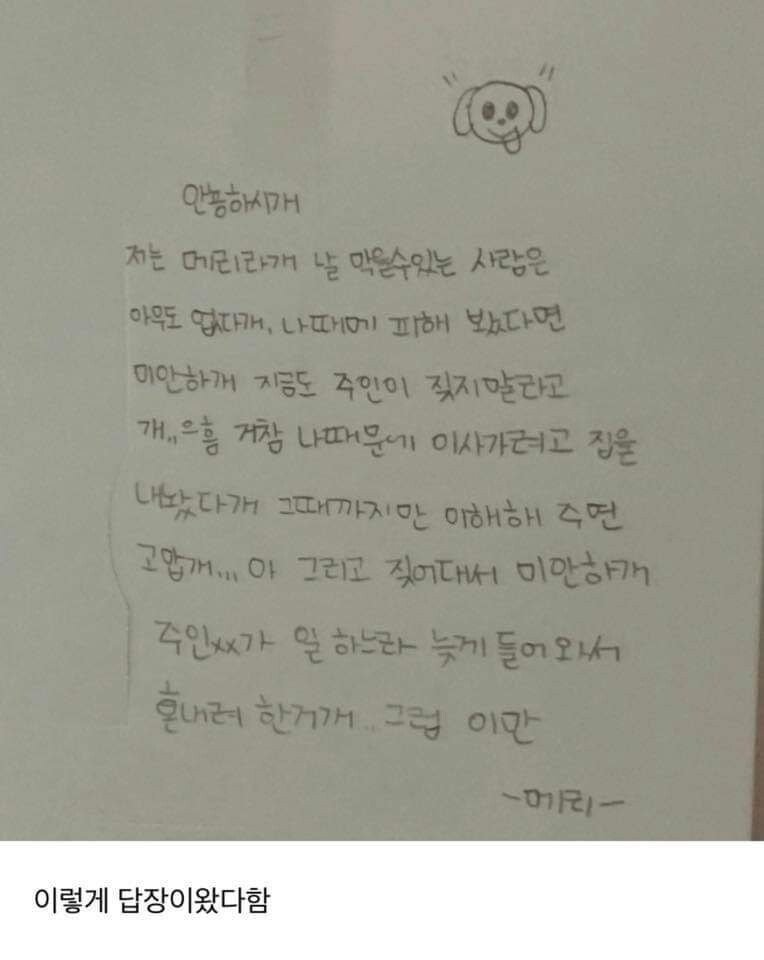 안뇽하시개
저는 메리라개 날 막을수있는 사람은
아무도 없다개, 나때메 피해 봤다면
미안하개 지금도 주인이 짖지말라고
개,,으흠 거참 나때문에 이사가려고 집을
내놨다개 그때까지만 이해해 주면
고맙개,,, 아 그리고 짖어대서 미안하개
주인xx가 일 하느라 늦게 들어와서
혼내려 한거개.. 그럼 이만
-메리-
이렇게 답장이왔다함